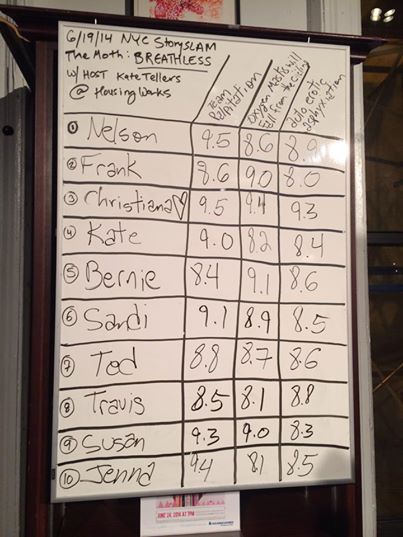 6/19/14 NYC StorySLAM
The Moth: BREATHLESS
w/ HOST Kate Tellers
@ Housing Works
Team Palpitation
Oxygen Masks will fall from the ceiling
auto erotic asphyxiation
1 Nelson 9.5 8.6 8.9
2 Frank 8.6 9.0 8.0
3 Christiana♡ 9.5 9.4 9.3
4 Kate 9.0 8.2 8.4
5 Bernie 8.4 9.1 8.6
6 Sandi 9.1 8.9 8.5
7 Ted 8.8 8.7 8.6
8 Travis 8.5 8.1 8.8
9 Susan 9.3 9.0 8.3
10 Jenna 9.4 8.1 8.5
JUNE 24, 2014 AT 7PM